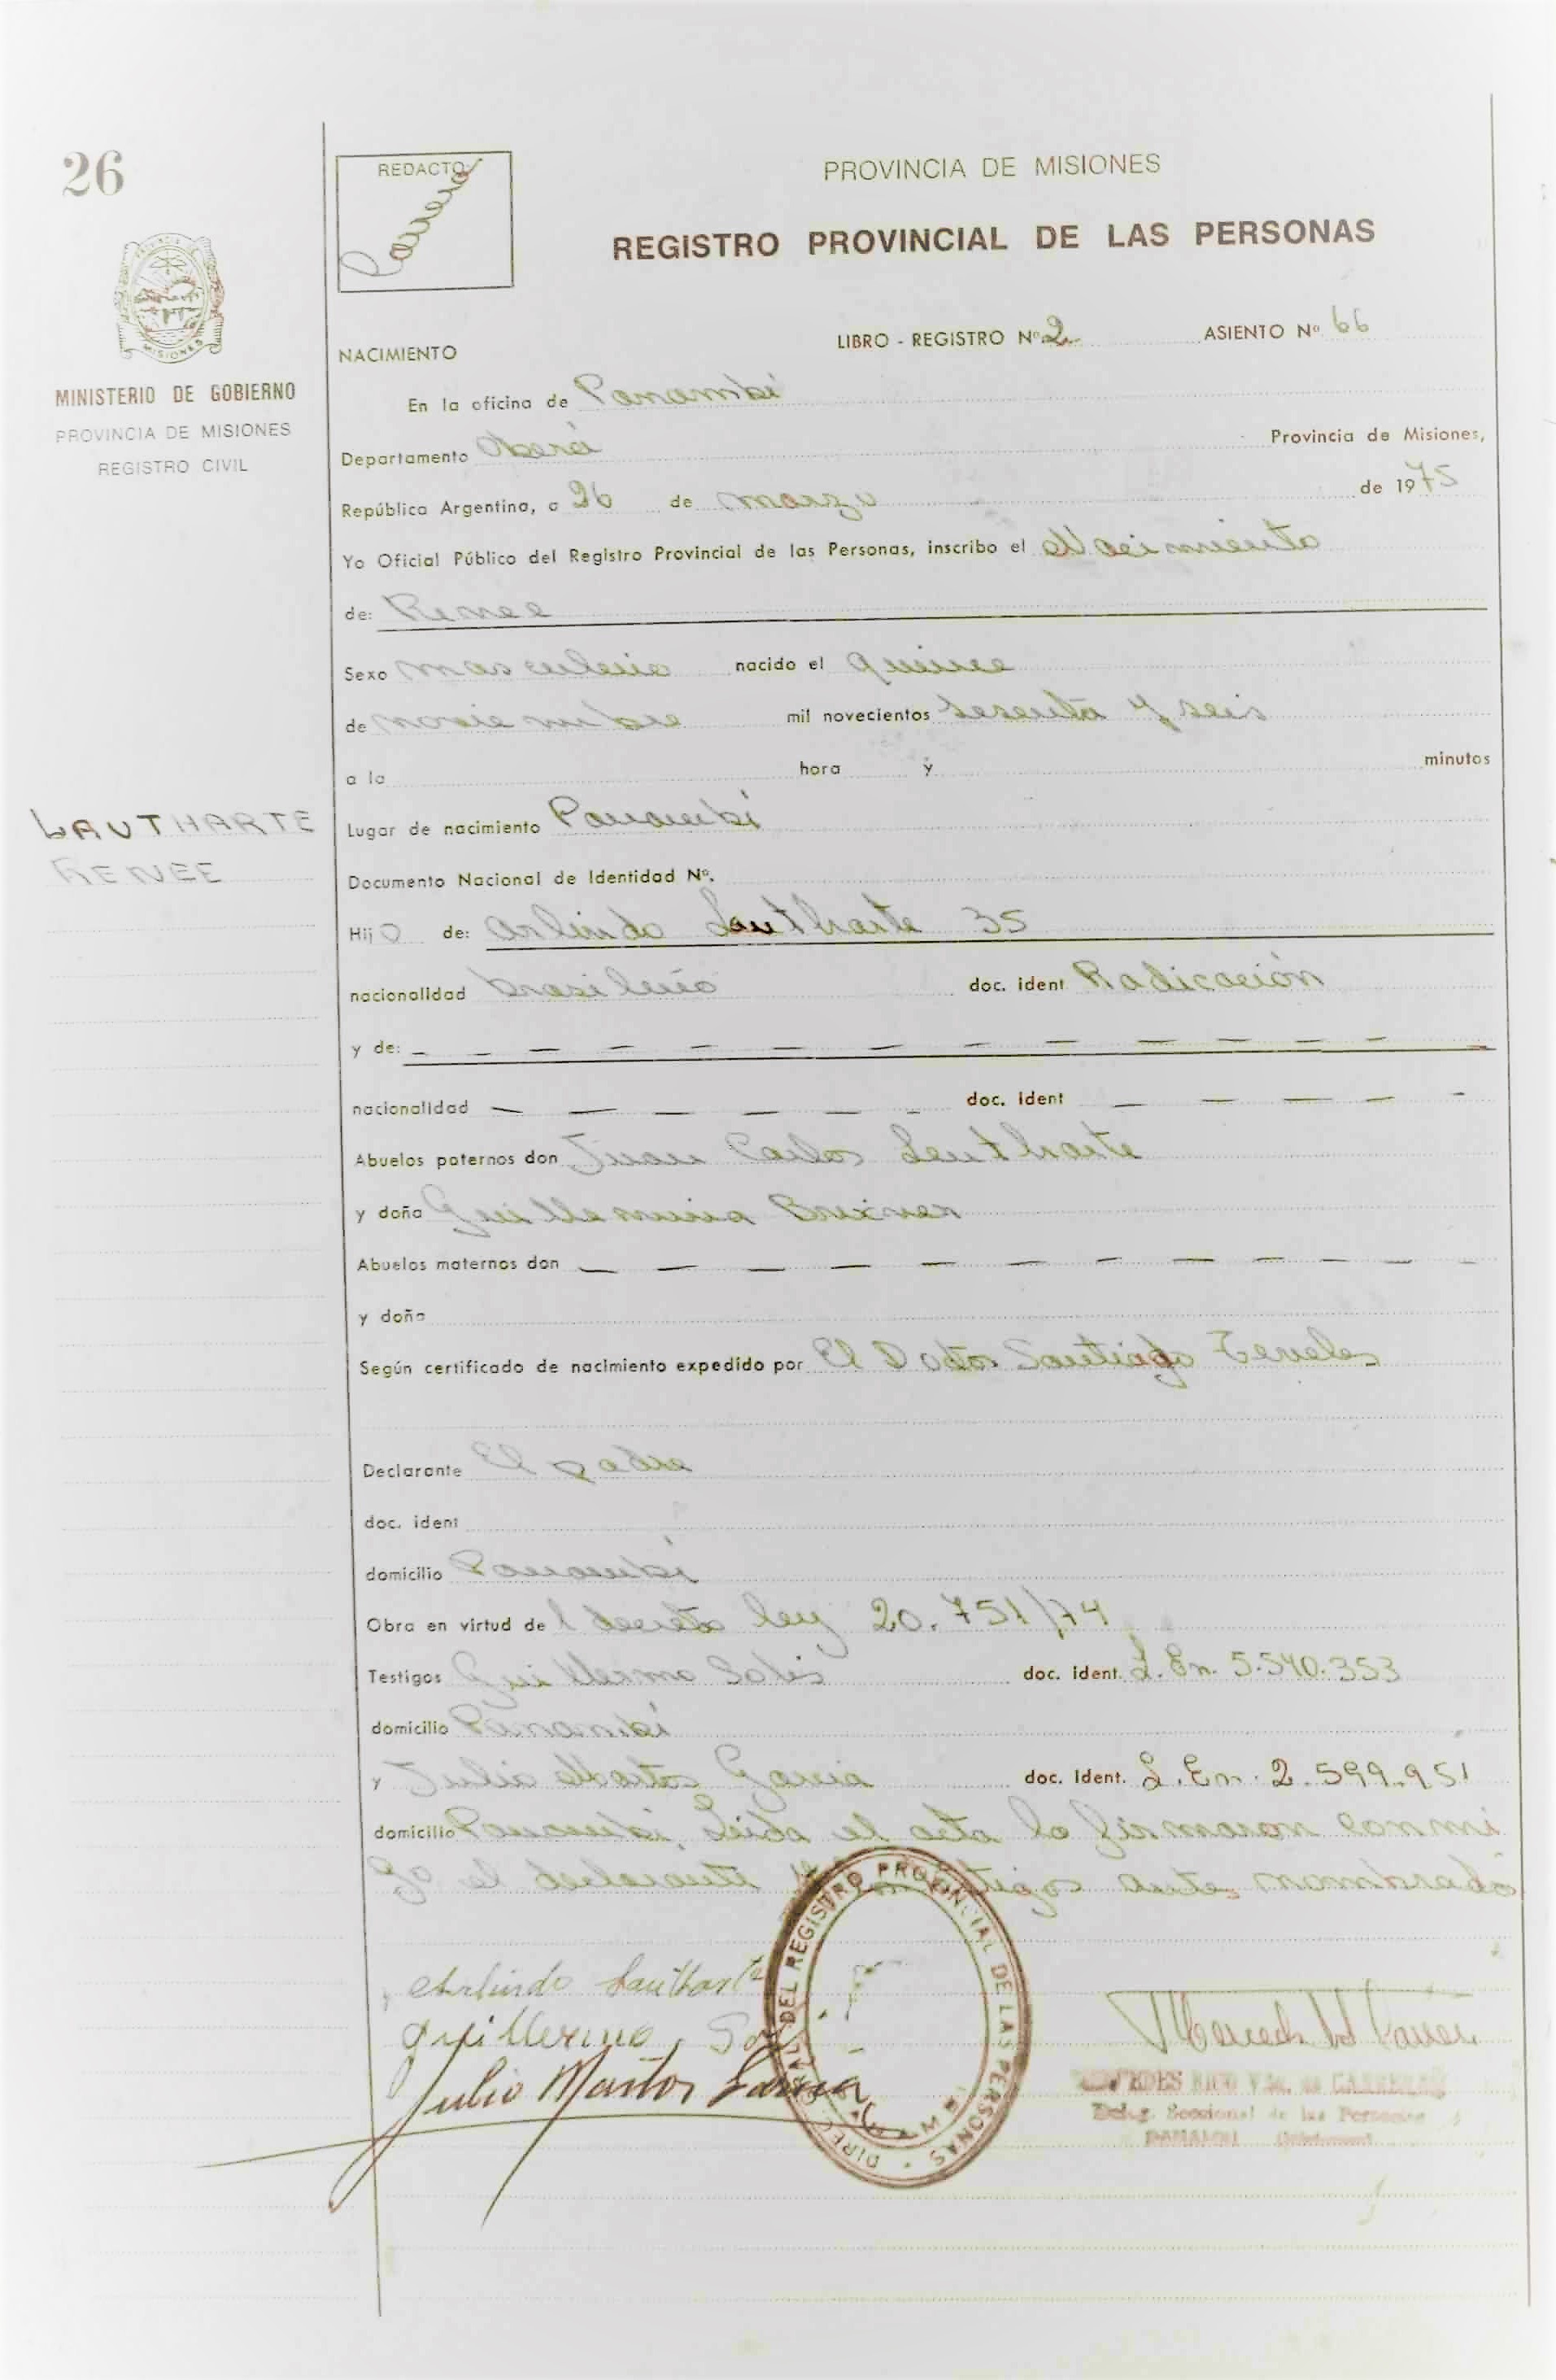 26
REDACTO:
Carrera
PROVINCIA DE MISIONES
REGISTRO PROVINCIAL DE LAS PERSONAS
MISIONES
MINISTERIO DE GOBIERNO
PROVINCIA DE MISIONES
REGISTRO CIVIL
LIBRO - REGISTRO Nº 2 ASIENTO Nº 66
NACIMIENTO
En la oficina de Panambí
Departamento Oberá Provincia de Misiones,
República Argentina, a 26 de marzo de 1975
Yo Oficial Público del Registro Provincial de las Personas, inscribo el Nacimiento
de: Renee
Sexo masculino nacido el quince
de noviembre mil novecientos sesenta y seis
a la hora y minutos
LAUTHARTE
RENEE
Lugar de nacimiento Panambí
Documento Nacional de Identidad Nº.
Hijo de: Arlindo Lautharte 35
nacionalidad brasileño doc. ident Radicación
y de: — — — — — — — — — — — — — —
nacionalidad — — — — — — doc. ident — — — — —
Abuelos paternos don Juan Carlos Lautharte
y doña Guillermina
Abuelos maternos don — — — — — — — — — — —
y doña
Según certificado de nacimiento expedido por El Doctor Santiago
Declarante El padre
doc. ident
domicilio Panambí
Obra en virtud del decreto ley 20.751/74
Testigos Guillermo Solis doc. ident. L. En. 5.540.353
domicilio Panambí
y Julio Martos Garcia doc. Ident. L. En. 2.599.951
domicilio Panambí, Leida el acta la firmaron conmi
Go el declarante y los testigos antes nombrados
Arlindo Lautharte
Guillermo
Julio Martos Garcia
DEL REGISTRO PROVINCIAL DE LAS PERSONAS
MERCEDES RICO Vda. de CARRERA
Deleg. Seccional de las Personas
PANAMBI